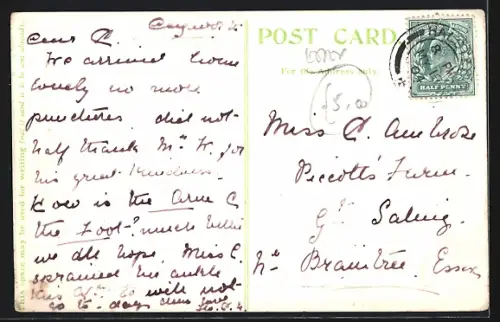 August 4
Dear C.
We arrived home
lovely no more
punctures did not
half thank Mr W. for
his great kindness.
How is the Arm &
the Foot? much better
we all hope. Miss C.
sprained his ankle
this so will not
go to-day
POST CARD.
For the Address only.
£5.00
HALF PENNY
Miss C. Ambrose
Piccotts Farm
Gt Saling
Nr Braintree, Essex
This space may be used for writing